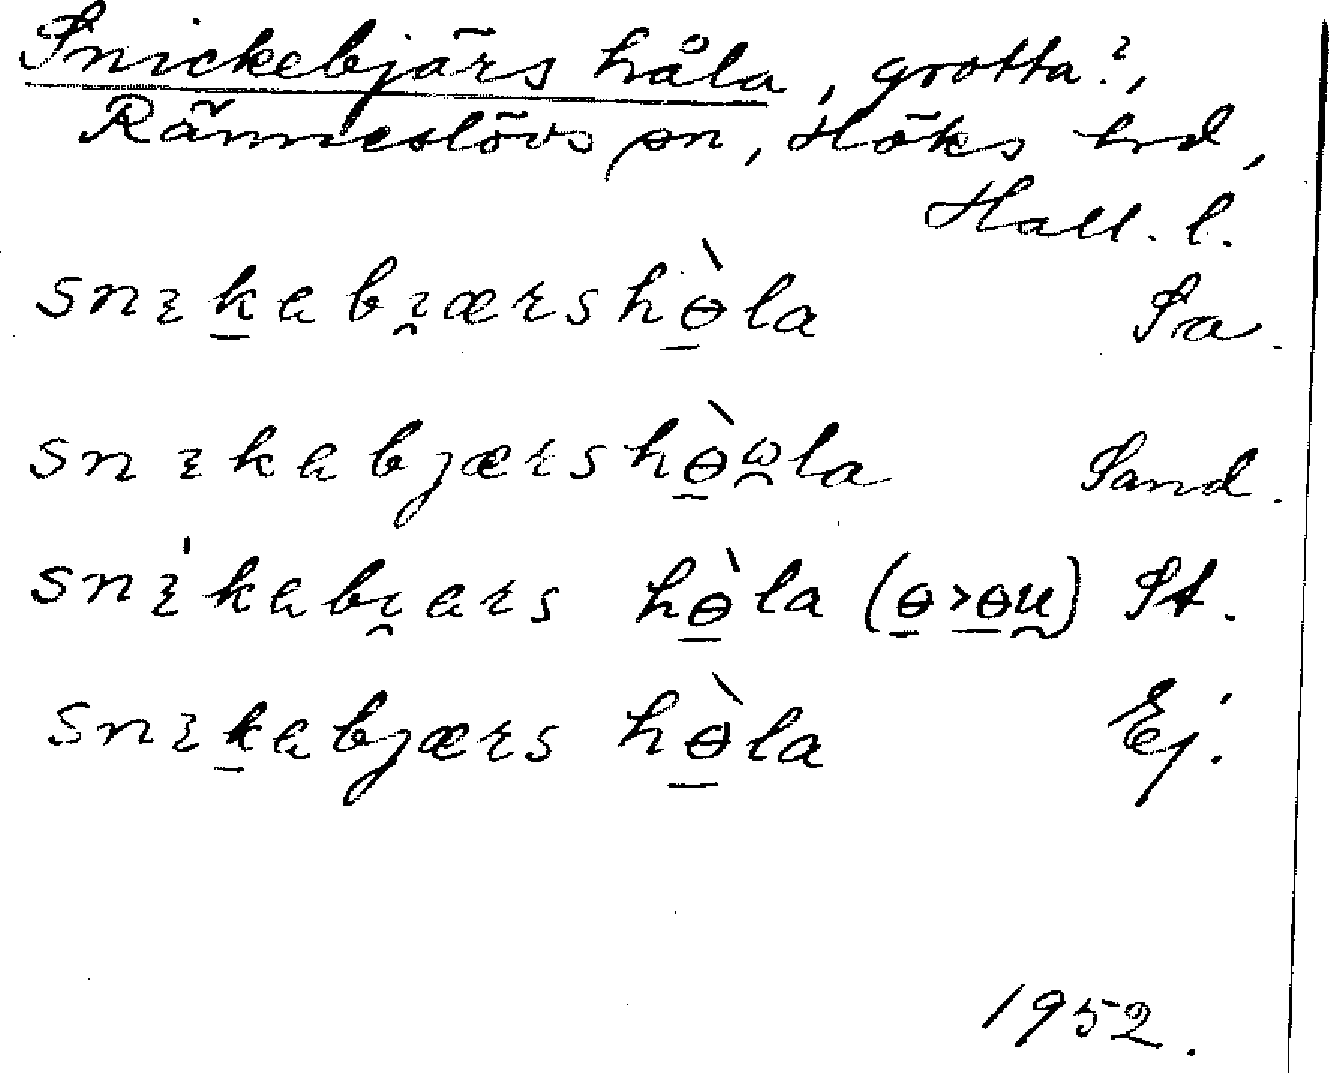 Snickebjärs håla, grotta?,
Ränneslövs sn, Höks hrd,
Hall. l.
snɪk̠abɪ̯ærshɵ̠̀la Sa.
snɪkabjærshɵ̠̀ω̯la Sand.
snɪ̍kabɪ̯ars hɵ̠̀la (ɵ̠>ɵ̠u̯) St.
snɪk̠abjærs hɵ̠̀la Ej.
1952.